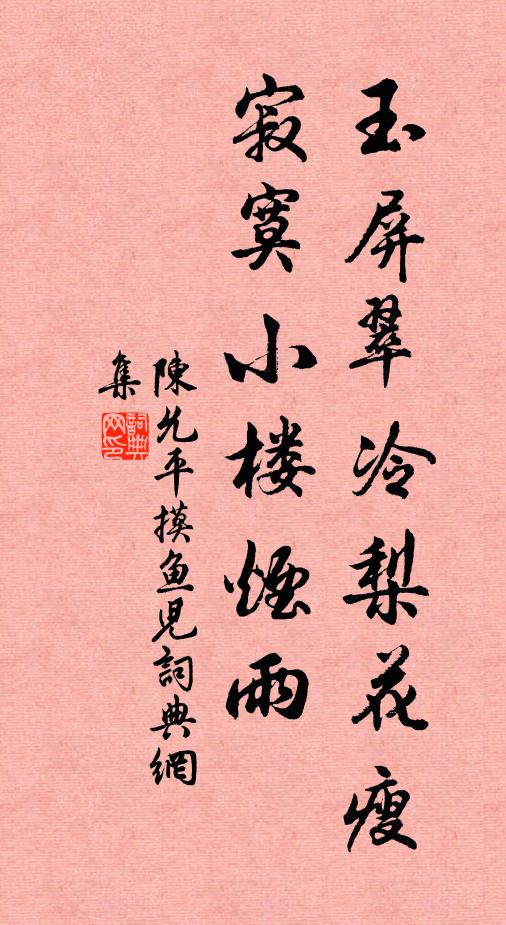 玉屏翠冷梨花瘦
寂寞小楼煙雨
陳允平摸鱼児詞典網
集
詞典网印